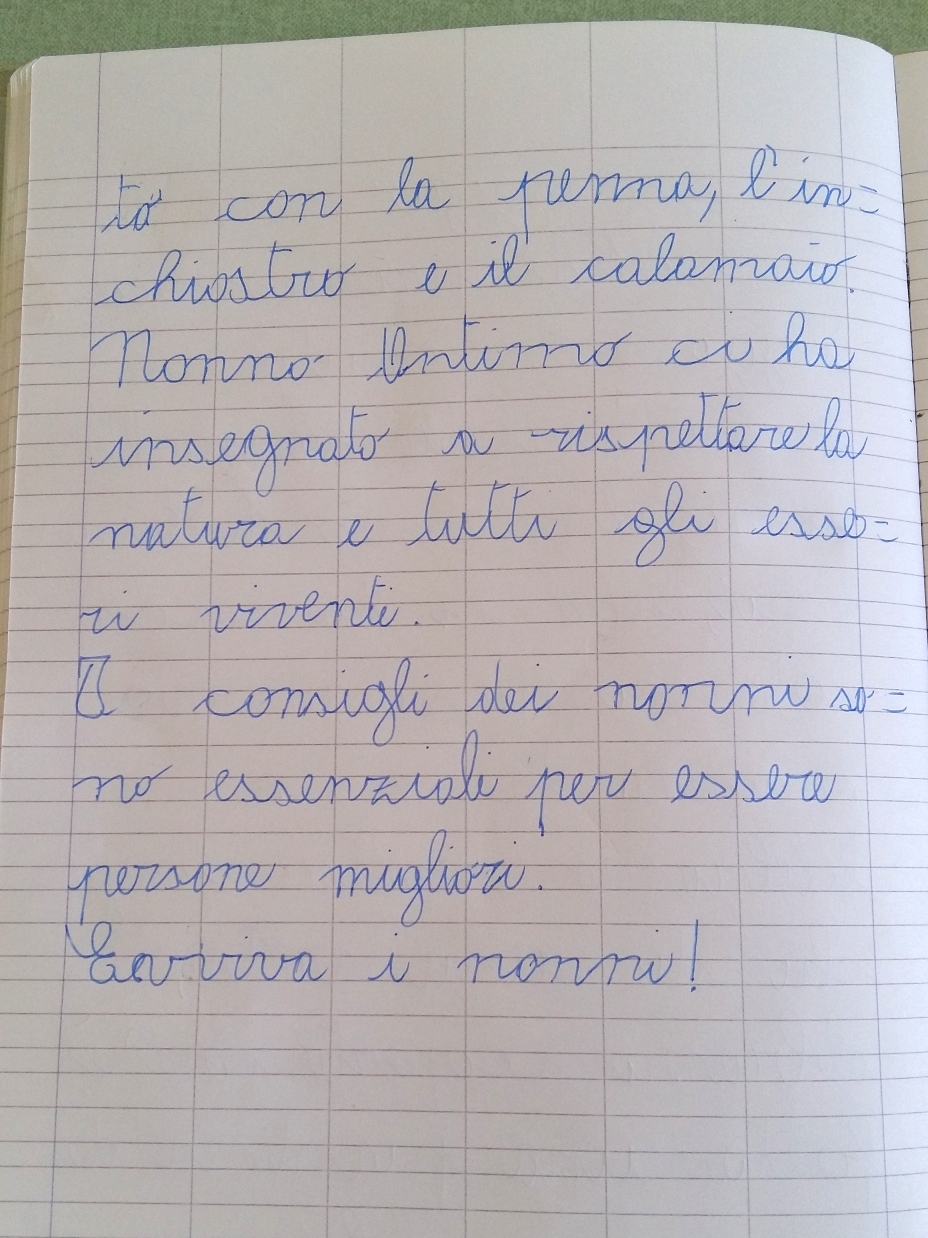 to con la penna, l'in=
chiostro e il calamaio.
Nonno Antimo ci ha
insegnato a rispettare la
natura e tutti gli esse=
ri viventi.
I consigli dei nonni so=
no essenziali per essere
persone migliori.
Evviva i nonni!